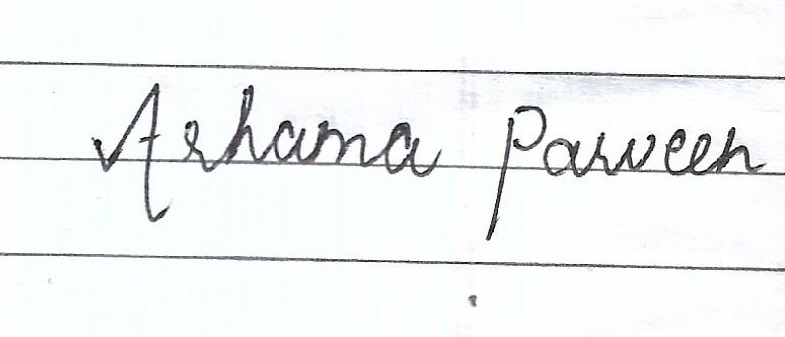 Arhama Parveen